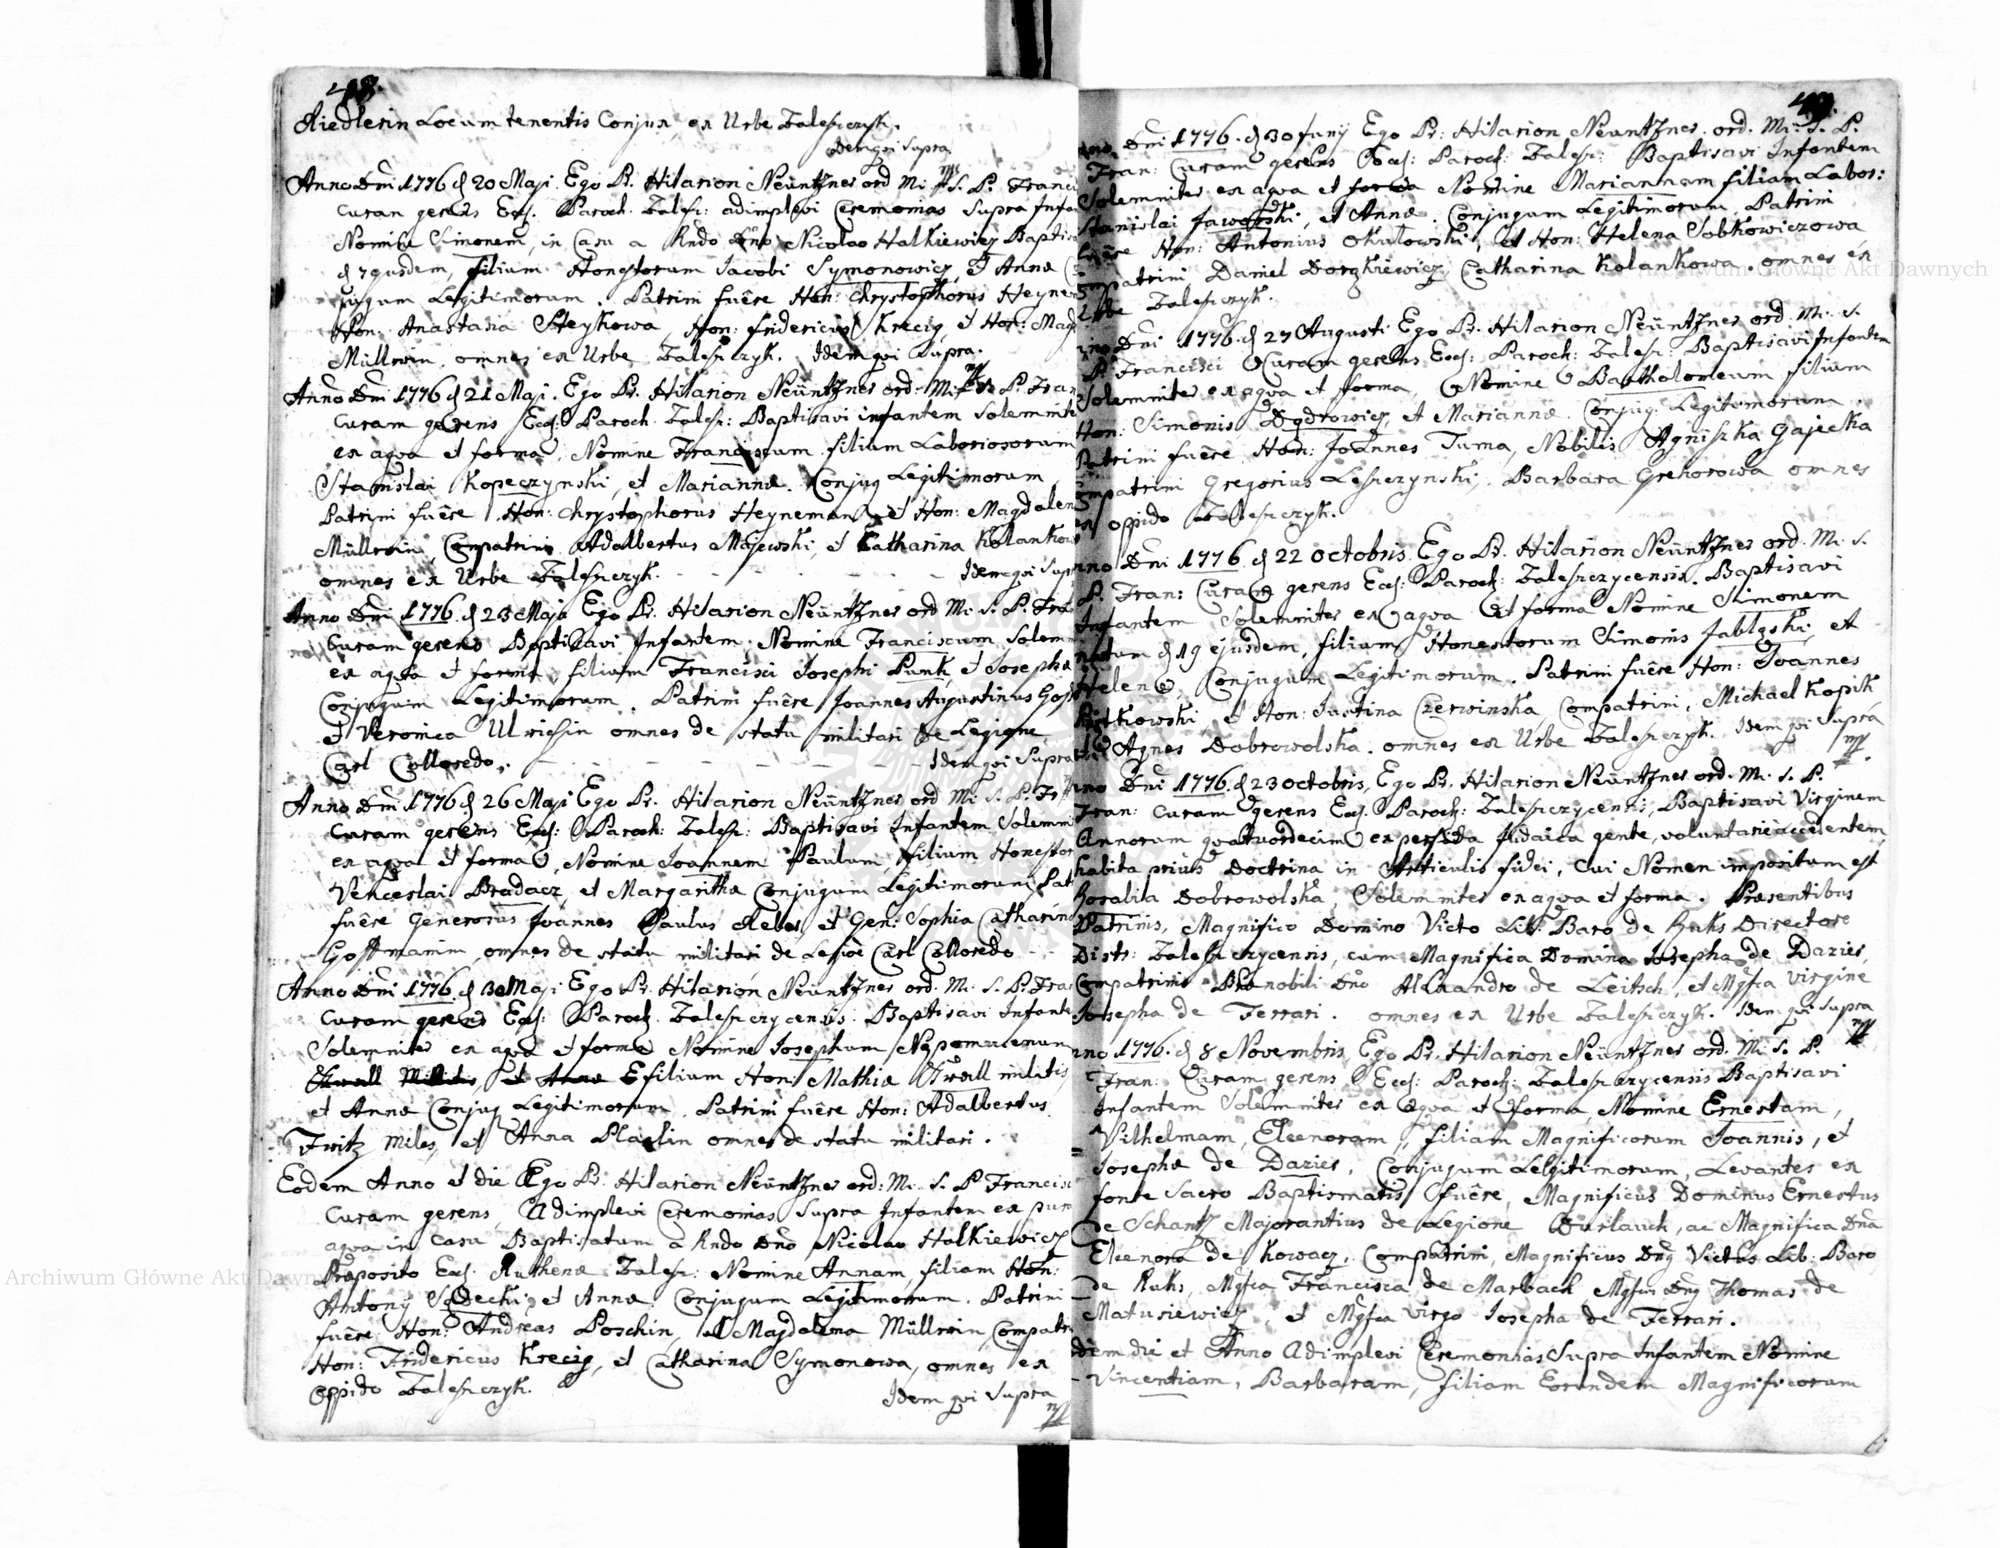 48.
Riedlerin Locum tenentis Conjux, ex Urbe Zaleszczyk.
Idem qui Supra
Anno Dni 1776 d 20 Maji. Ego Pr. Hilarion Neüntzner ord Mi: S. P. Franci
curam gerens Eccl. Paroch. Zalesz: adimplevi Ceremonias Supra Infan
Nomine Simonem, in Casu a Rndo Dno Nicolao Halkiewicz Baptisa
d 7 ejusdem, filium Honestorum Jacobi Symonowicz, et Annæ
jugum Legitimorum. Patrini fuêre Hon: Chrystophorus Heynem
Hon: Anastasia Steykowa, Hon: Fridericus Krecig, et Hon: Magd
Müllerin, omnes ex Urbe Zaleszczyk. Idem qui Supra.
Anno Dni 1776 d 21 Maji. Ego Pr. Hilarion Neüntzner ord. Mi: S. P. Fran
Curam gerens Eccl: Paroch. Zalesz: Baptisavi infantem Solemnite
ex aqva et forma, Nomine Franciscum filium Laboriosorum
Stanislai Kopeczynski, et Mariannæ. Conjug Legitimorum
Patrini fuêre Hon: Chrystophorus Heyneman, et Hon: Magdalen
Müllerin, Compatrini Adalbertus Majewski, et Catharina Kolankow
omnes ex Urbe Zaleszczyk. - - - - - Idem qui Supr
Anno Dni 1776 d 23 Maja Ego Pr. Hilarion Neüntzner ord Mi. S. P. Fra
Curam gerens Baptisavi Infantem, Nomine Franciscum, Solem
ex aqva et forma, filium Francisci Josephi Punk, et Josephæ
Conjugum Legitimorum. Patrini fuêre Joannes Augustinus Gof
et Veronica Ulrichin omnes de statu militari de Legione
Carl Colloredo. - - - - - Idem qui Supra
Anno Dni 1776 d 26 Maji Ego Pr. Hilarion Neüntzner ord Mi. S. P. Fr
Curam gerens Eccl: Paroch: Zalesz: Baptisavi Infantem Solemn
ex aqva et forma, Nomine Joannem Paulum, filium Honestor
Venceslai Bradacz, et Margarithæ Conjugum Legitimorum, Pat
fuêre Generosus Joannes Paulus Reber, et Gen: Sophia Catharina
Goffmanin, omnes de statu militari de Legioe Carl Colloredo
Anno Dni 1776. d 30 Maji Ego Pr. Hilarion Neüntzner ord. Mi. S. P. Fra
curam gerens Eccl: Paroch. Zaleszczycensis. Baptisavi Infante
Solemniter ex aqva et forma Nomine Josephum Nepomucenum
filium Hon: Mathiæ militis
et Annæ Conjug Legitimorum. Patrini fuêre Hon: Adalbertus
Fritz Miles, et Anna Placlin omnes de statu militari.
Eodem Anno et die Ego Pr. Hilarion Neüntzner ord: Mi. S. P Francisc
Curam gerens, Adimplevi Ceremonias Supra Infantem ex pur
aqva in Casu Baptisatum a Rndo Dno Nicolao Halkiewicz
Præposito Eccl. Ruthenæ Zalesz: Nomine Annam, filiam Hon:
Antonij Sądecki, et Annæ. Conjugum Legitimorum. Patrini
fuêre Hon: Andreas Poschin, et Magdalena Müllerin, Compatri
Hon: Fridericus Krecig, et Catharina Symonowa, omnes ex
Oppido Zaleszczyk. Idem qui Supra
49.
Dni 1776. d 30 Junij Ego Pr: Hilarion Neüntzner. ord. Mi: S. P.
Fran: Curam gerens Eccl: Paroch: Zalesz: Baptisavi Infantem
Solemniter ex aqva et forma Nomine Mariannam filiam Labor:
Stanislai Jaworski, et Annæ. Conjugum Legitimorum. Patrini
fuêre Hon: Antonius Okulowski, et Hon: Helena Sobkowiczowa
ompatrini Daniel Dorgkiewicz, Catharina Kolankowa. omnes ex
Urbe Zaleszczyk.
nno Dni 1776. d 27 Augusti Ego Pr. Hilarion Neüntzner ord. Mi. S.
P. Francisci Curam gerens Eccl: Paroch: Zalesz: Baptisavi Infantem
Solemniter ex aqva et forma, Nomine Bartholomeum filium
Hon: Simonis Dydrowicz, et Mariannæ. Conjug: Legitimorum.
Patrini fuêre Hon: Joannes Tuma, Nobilis Agniszka Gajecka
ompatrini Gregorius Leszczynski, Barbara Grehorowa omnes
ex oppido Zaleszczyk.
nno Dni 1776. d 22 octobris. Ego Pr. Hilarion Neüntzner ord. Mi. S.
P. Fran: Curam gerens Eccl: Paroch: Zaleszczycensis. Baptisavi
Infantem Solemniter ex aqva et forma Nomine Simonem
natum d 19 ejusdem, filium Honestorum Simonis Jabląski, et
Helenæ, Conjugum Legitimorum. Patrini fuêre Hon: Joannes
Pitkowski, et Hon: Justina Czerwinska Compatrini, Michael Kopik
Agnes Dobrowolska. omnes ex Urbe Zaleszczyk. Idem qui Supra
nno Dni 1776. d 23 octobris, Ego Pr. Hilarion Neüntzner ord. Mi. S. P.
Fran: Curam gerens Eccl. Paroch: Zaleszczycensi, Baptisavi Virginem
Annorum qvatuordecim ex perfida Judaica gente, voluntarie accedentem,
habita prius Doctrina in Articulis fidei, Cui Nomen impositum est
Rosalia Dobrowolska, Solemniter ex aqva et forma. Præsentibus
Patrinis, Magnifico Domino Victo Lib. Baro de Ruks Directore
Distr: Zaleszczycensis, cum Magnifica Domina Josepha de Daries,
Compatrinis Prænobili Dno Alexandro de Leitsch, et Mgfca Virgine
Josepha de Ferrari. omnes ex Urbe Zaleszczyk. Idem qui Supra
nno 1776. d 8 Novembris, Ego Pr. Hilarion Neüntzner ord. Mi. S. P.
Fran: Curam gerens Eccl: Paroch: Zaleszczycensis Baptisavi
Infantem Solemniter ex aqva et forma, Nomine Ernestam,
Vilhelmam, Eleenoram, filiam Magnificorum Joannis, et
Josephæ de Daries, Conjugum Legitimorum, Levantes ex
fonte Sacro Baptismatis fuêre, Magnificus Dominus Ernestus
de Schantz Majorantius de Legione Durlauch, ac Magnifica Dna
Eleenora de Kowacz, Compatrini, Magnificus Dng Victus Lib: Baro
de Ruks, Mgfca Francisca de Marbach Mgfcus Dng Thomas de
Matusiewicz, et Mgfca virgo Josepha de Ferrari.
dem die et Anno Adimplevi Ceremonias Supra Infantem Nomine
Vincentiam, Barbaram, filiam Eorundem Magnificorum
Archiwum Główne Akt Dawnych